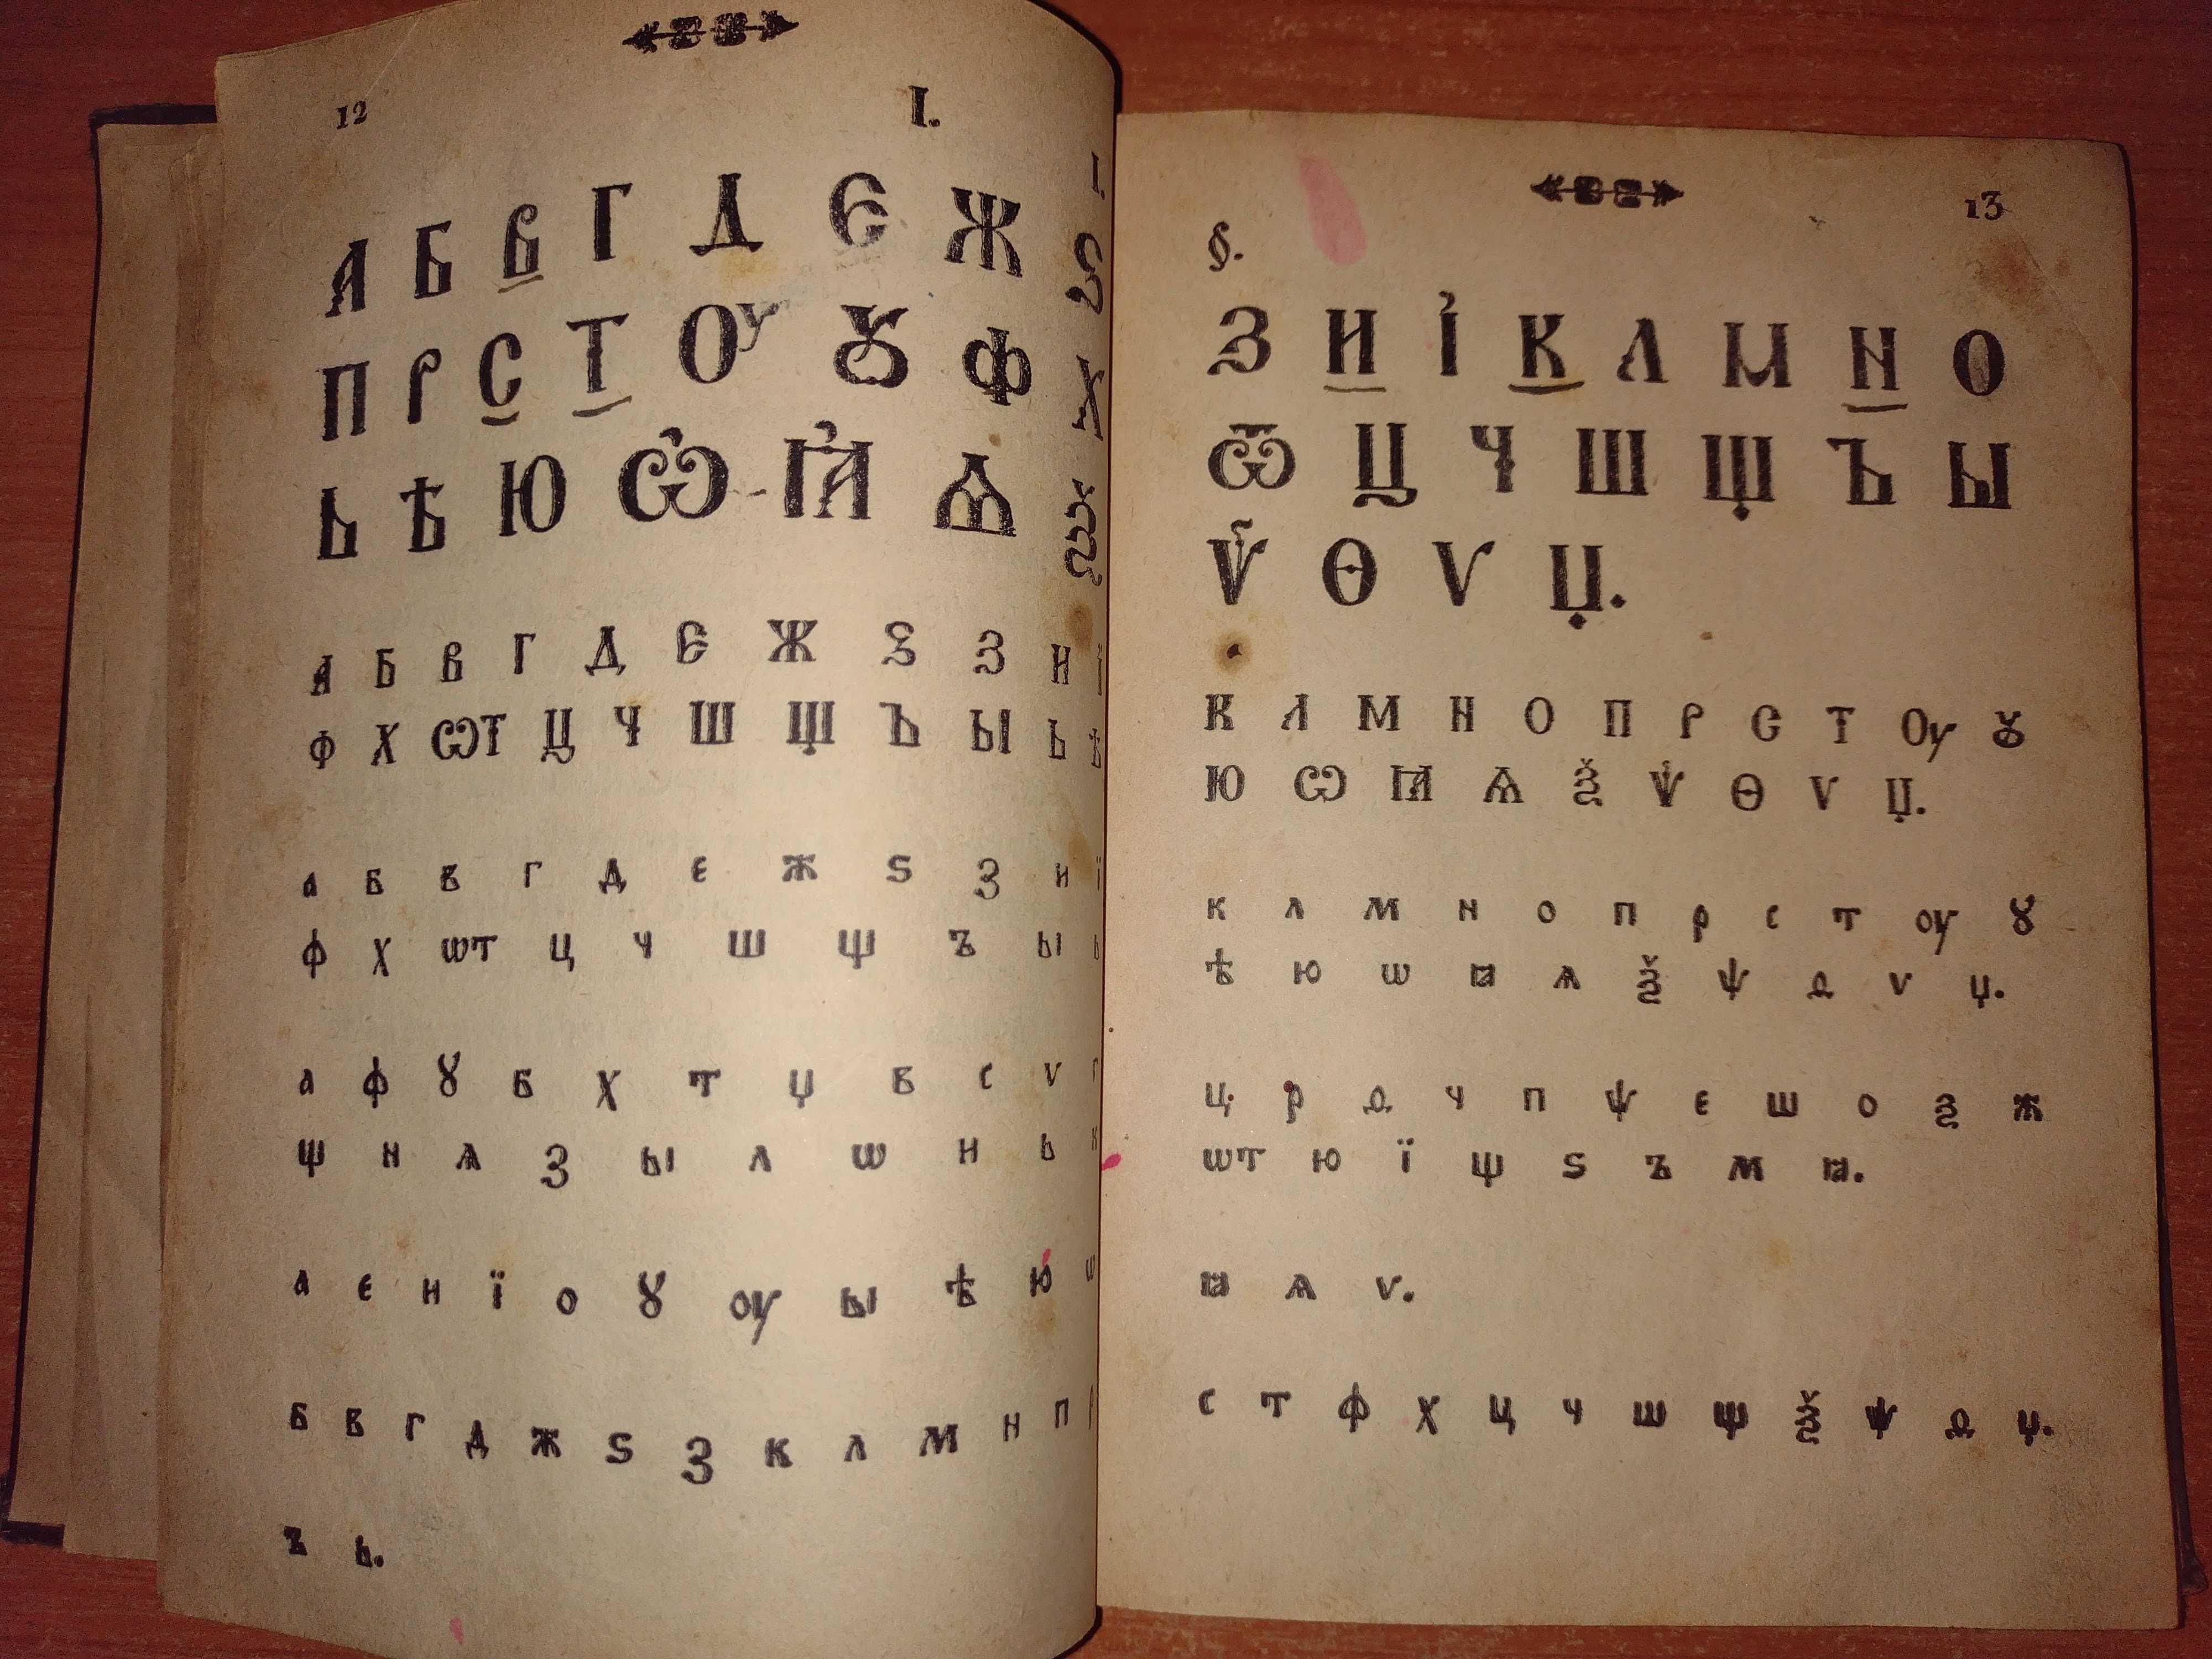 12 I.
А Б В Г Д Є Ж Ѕ
П Р С Т Оу Ꙋ Ф Х
Ь Ѣ Ю Ѡ҆ Ꙗ҆ Ѧ Ѯ
А Б В Г Д Є Ж Ѕ З И
Ф Х ѠТ Ц Ч Ш Щ Ъ Ы Ь Ѣ
а б в г д є ж ѕ з и ї
ф х ѡт ц ч ш щ ъ ы ь
а ф ꙋ б х т џ в с ѵ г
щ и ѧ з ы л ѡ н ь к
а є и ї о ꙋ оу ы ѣ ю ѡ
б в г д ж ѕ з к л м н п р
ъ ь.
13
§.
З И І҆ К Л М Н О
Ѿ Ц Ч Ш Щ Ъ Ы
Ѱ Ѳ Ѵ Џ.
К Л М Н О П Р С Т Оу Ꙋ
Ю Ѡ Ꙗ Ѧ Ѯ Ѱ Ѳ Ѵ Џ.
к л м н о п р с т оу ꙋ
ѣ ю ѡ ꙗ ѧ ѯ ѱ ѳ ѵ џ.
ц р ѳ ч п ѱ є ш о ѯ ж
ѡт ю ї щ ѕ ъ м ꙗ.
ꙗ ѧ ѵ.
с т ф х ц ч ш щ ѯ ѱ ѳ џ.